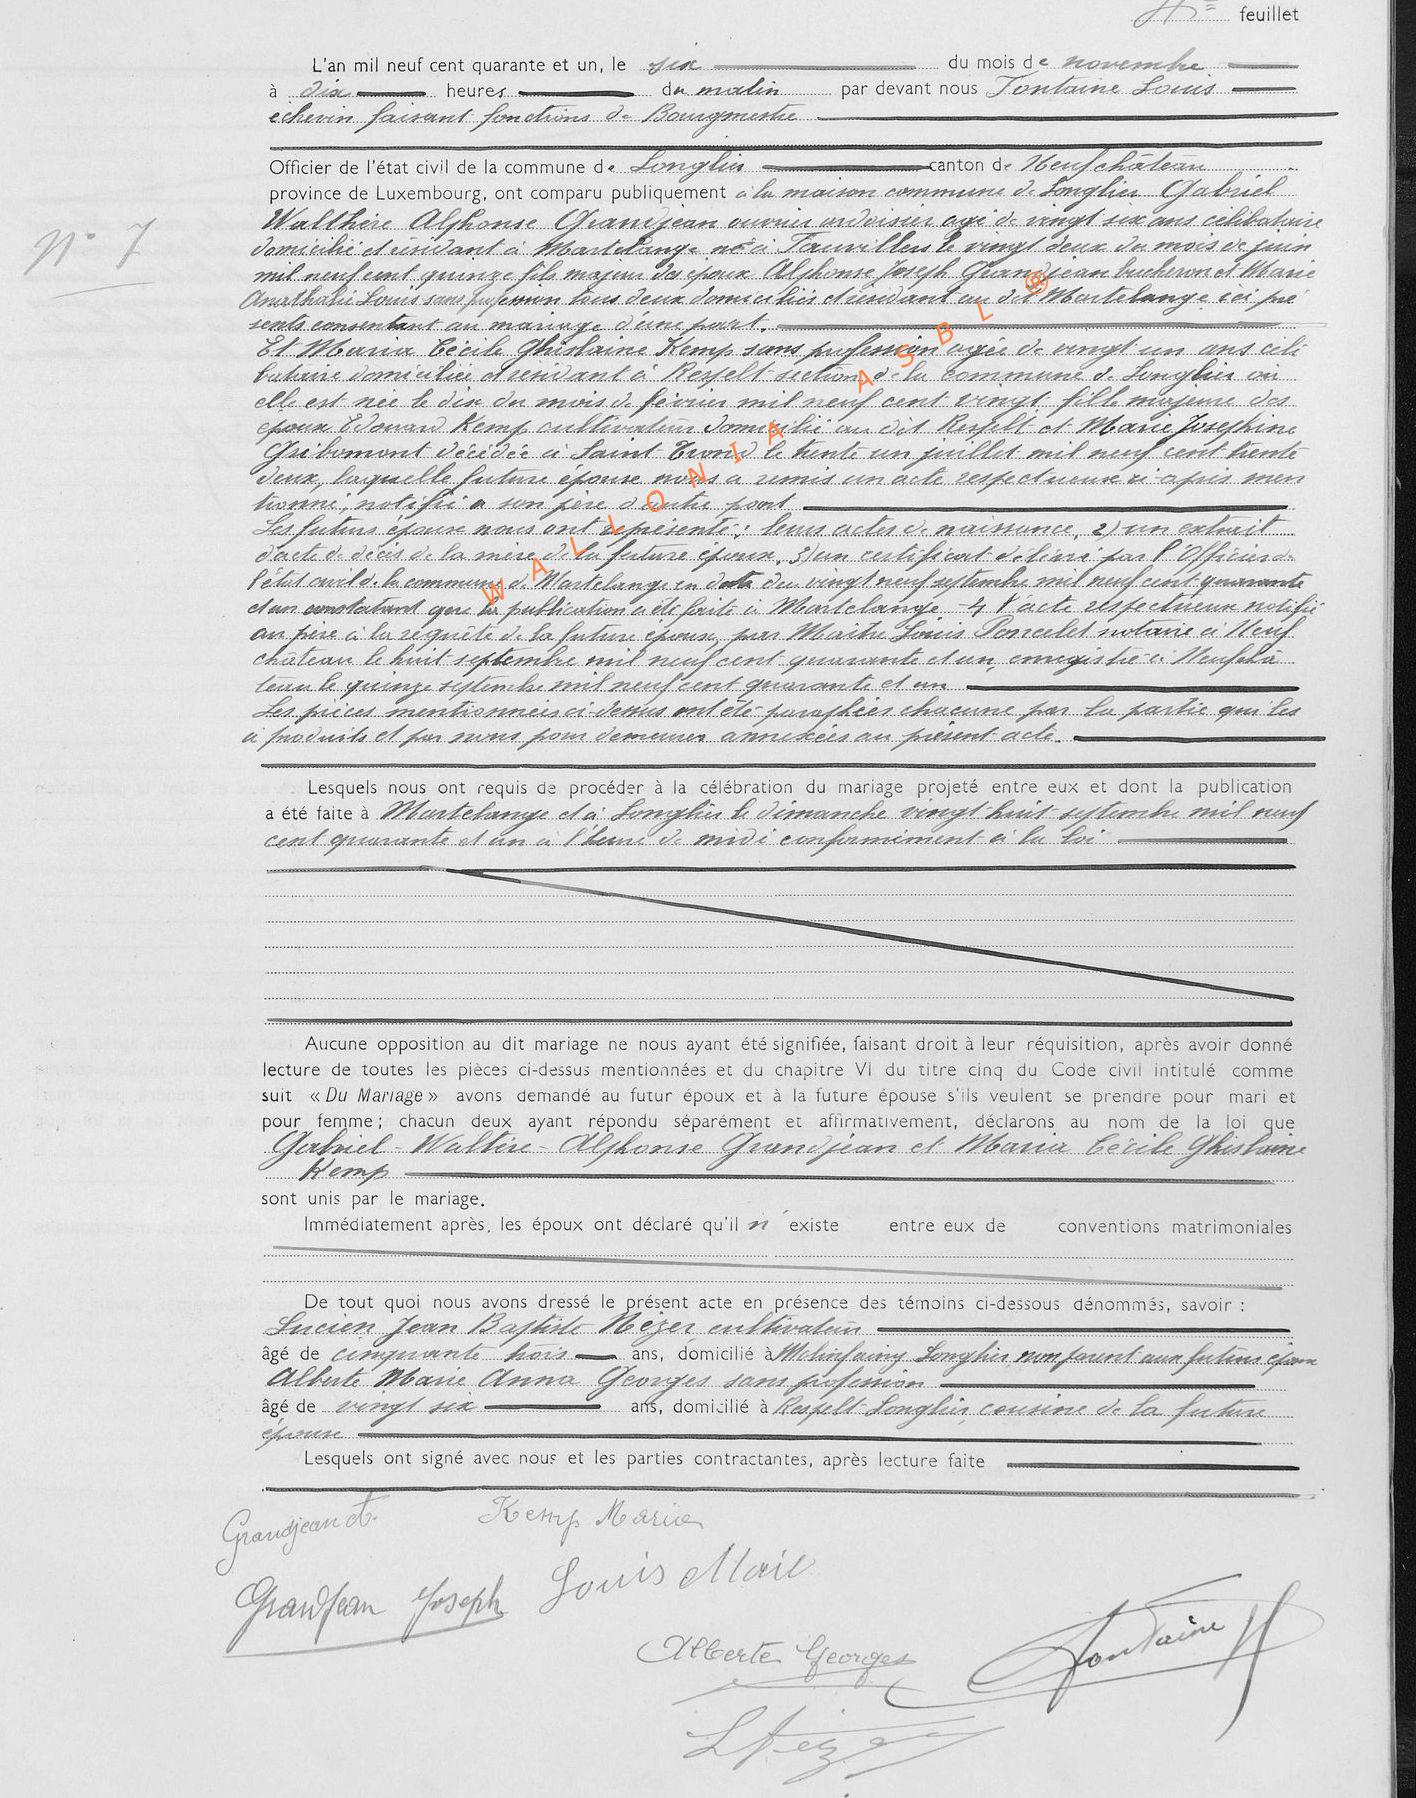 feuillet
L'an mil neuf cent quarante et un, le six du mois de novembre
à dix heures du matin par devant nous Fontaine Louis
échevin faisant fonctions de Bourgmestre
Officier de l'état civil de la commune de Longlier canton de Neufchâteau
province de Luxembourg, ont comparu publiquement à la maison commune de Longlier Gabriel
Walthère Alphonse Grandjean ouvrier ardoisier agé de vingt six ans célibataire
domicilié et résidant à Martelange né à Fauvillers le vingt deux du mois de juin
mil neuf cent quinze fils majeur des époux Alphonse Joseph Grandjean bucheron et Marie
Anathalie Louis sans profession tous deux domiciliés et résidant au dit Martelange ici pré
sents consentant au mariage d'une part.
Et Maria Cécile Ghislaine Kemp sans profession agée de vingt un ans céli
bataire domiciliée et résidant à Respelt section de la commune de Longlier où
elle est née le dix du mois de février mil neuf cent vingt fille majeure des
époux Edouard Kemp cultivateur domicilié au dit Respelt et Marie Josephine
Gribomont décédée à Saint Trond le trente un juillet mil neuf cent trente
deux, laquelle future épouse nous a remis un acte respectueux ci après men
tionné, notifié a son père d'autre part
Les futurs époux nous ont représenté: leurs actes de naissance, 2) un extrait
d'acte de décès de la mère de la future épouse. 3) un certificat délivré par l'Officier de
l'état civil de la commune de Martelange en date du vingt neuf septembre mil neuf cent quarante
et un constatant que la publication a été faite à Martelange - 4 l'acte respectueux notifié
au père à la requête de la future épouse, par Maître Louis Poncelet notaire à Neuf
château le huit septembre mil neuf cent quarante et un, enregistré à Neufchâ
teau le quinze septembre mil neuf cent quarante et un
Les pièces mentionnées ci dessus ont été paraphées chacune par la partie qui les
a produits et par nous pour demeurer annexées au présent acte.
N° 7
Lesquels nous ont requis de procéder à la célébration du mariage projeté entre eux et dont la publication
a été faite à Martelange et à Longlier le dimanche vingt-huit septembre mil neuf
cent quarante et un à l'heure de midi conformément à la loi
Aucune opposition au dit mariage ne nous ayant été signifiée, faisant droit à leur réquisition, après avoir donné
lecture de toutes les pièces ci-dessus mentionnées et du chapitre VI du titre cinq du Code civil intitulé comme
suit « Du Mariage » avons demandé au futur époux et à la future épouse s'ils veulent se prendre pour mari et
pour femme ; chacun deux ayant répondu séparément et affirmativement, déclarons au nom de la loi que
Gabriel - Waltère - Alphonse Grandjean et Maria Cécile Ghislaine
Kemp
sont unis par le mariage.
Immédiatement après, les époux ont déclaré qu'il n'existe entre eux de conventions matrimoniales
De tout quoi nous avons dressé le présent acte en présence des témoins ci-dessous dénommés, savoir :
Lucien Jean Baptiste Nézer cultivateur
âgé de cinquante trois ans, domicilié à Molinfaing Longlier non parent aux futurs époux
Alberte Marie Anna Georges sans profession
âgé de vingt six ans, domicilié à Respelt-Longlier, cousine de la future
épouse
Lesquels ont signé avec nous et les parties contractantes, après lecture faite
Grandjean A. Kemp Maria
Grandjean Joseph Louis Marie
Alberte Georges Fontaine
WALLONIA ASBL ®